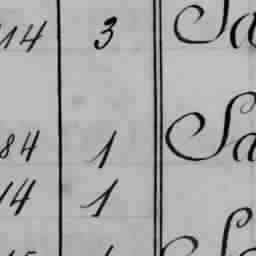 14 3 Sa
84 1 Sa
14 1